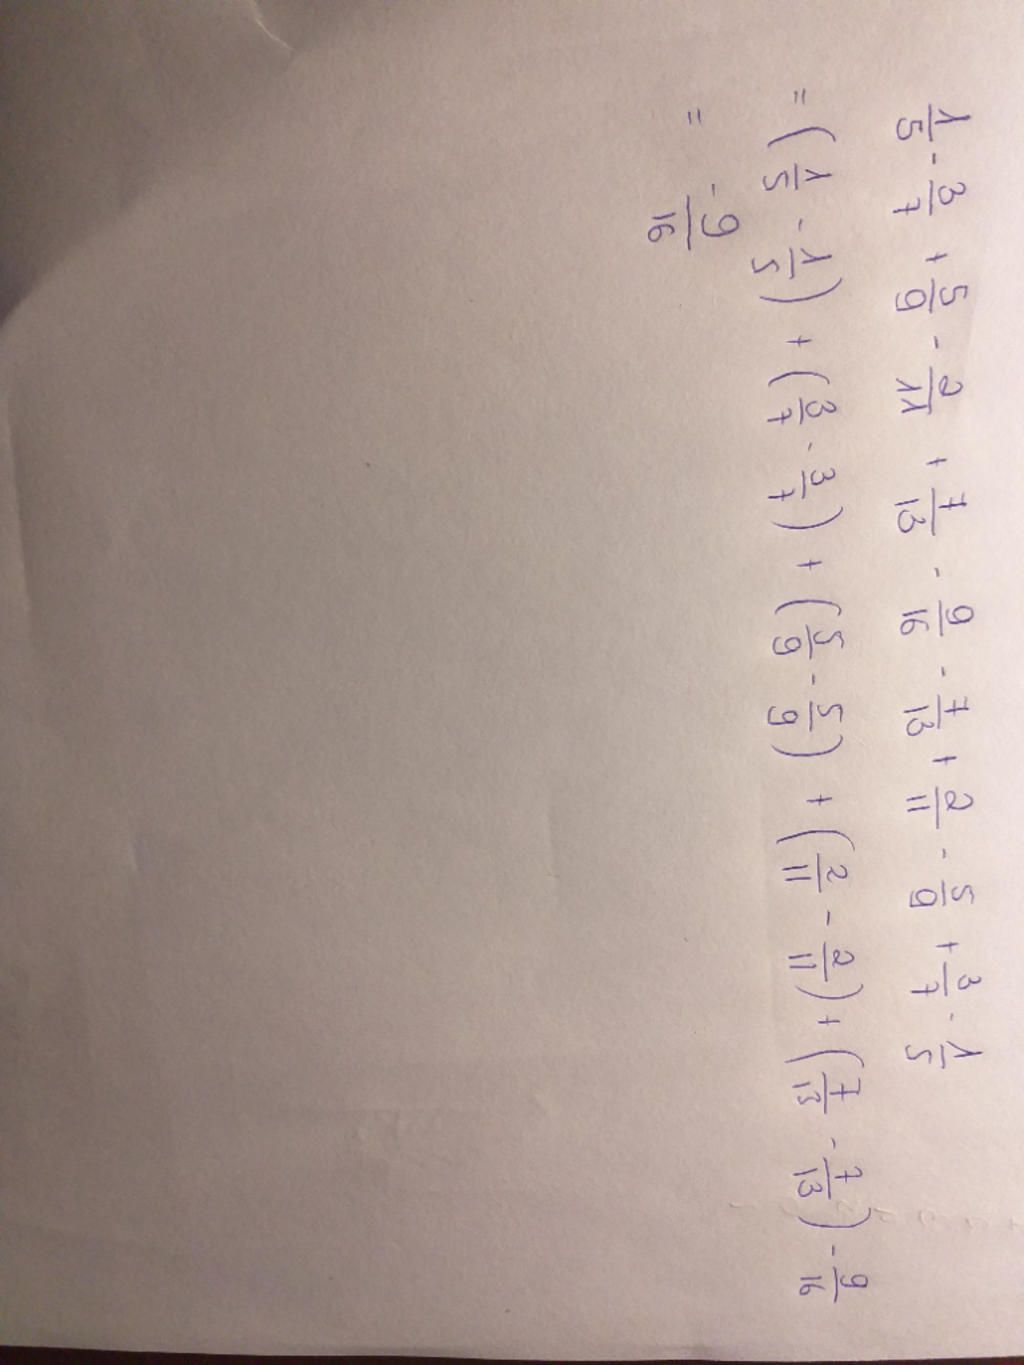 1/5 - 3/7 + 5/9 - 2/11 + 7/13 - 9/16 - 7/13 + 2/11 - 5/9 + 3/7 - 1/5
= (1/5 - 1/5) + (3/7 - 3/7) + (5/9 - 5/9) + (2/11 - 2/11) + (7/13 - 7/13) - 9/16
= -9/16